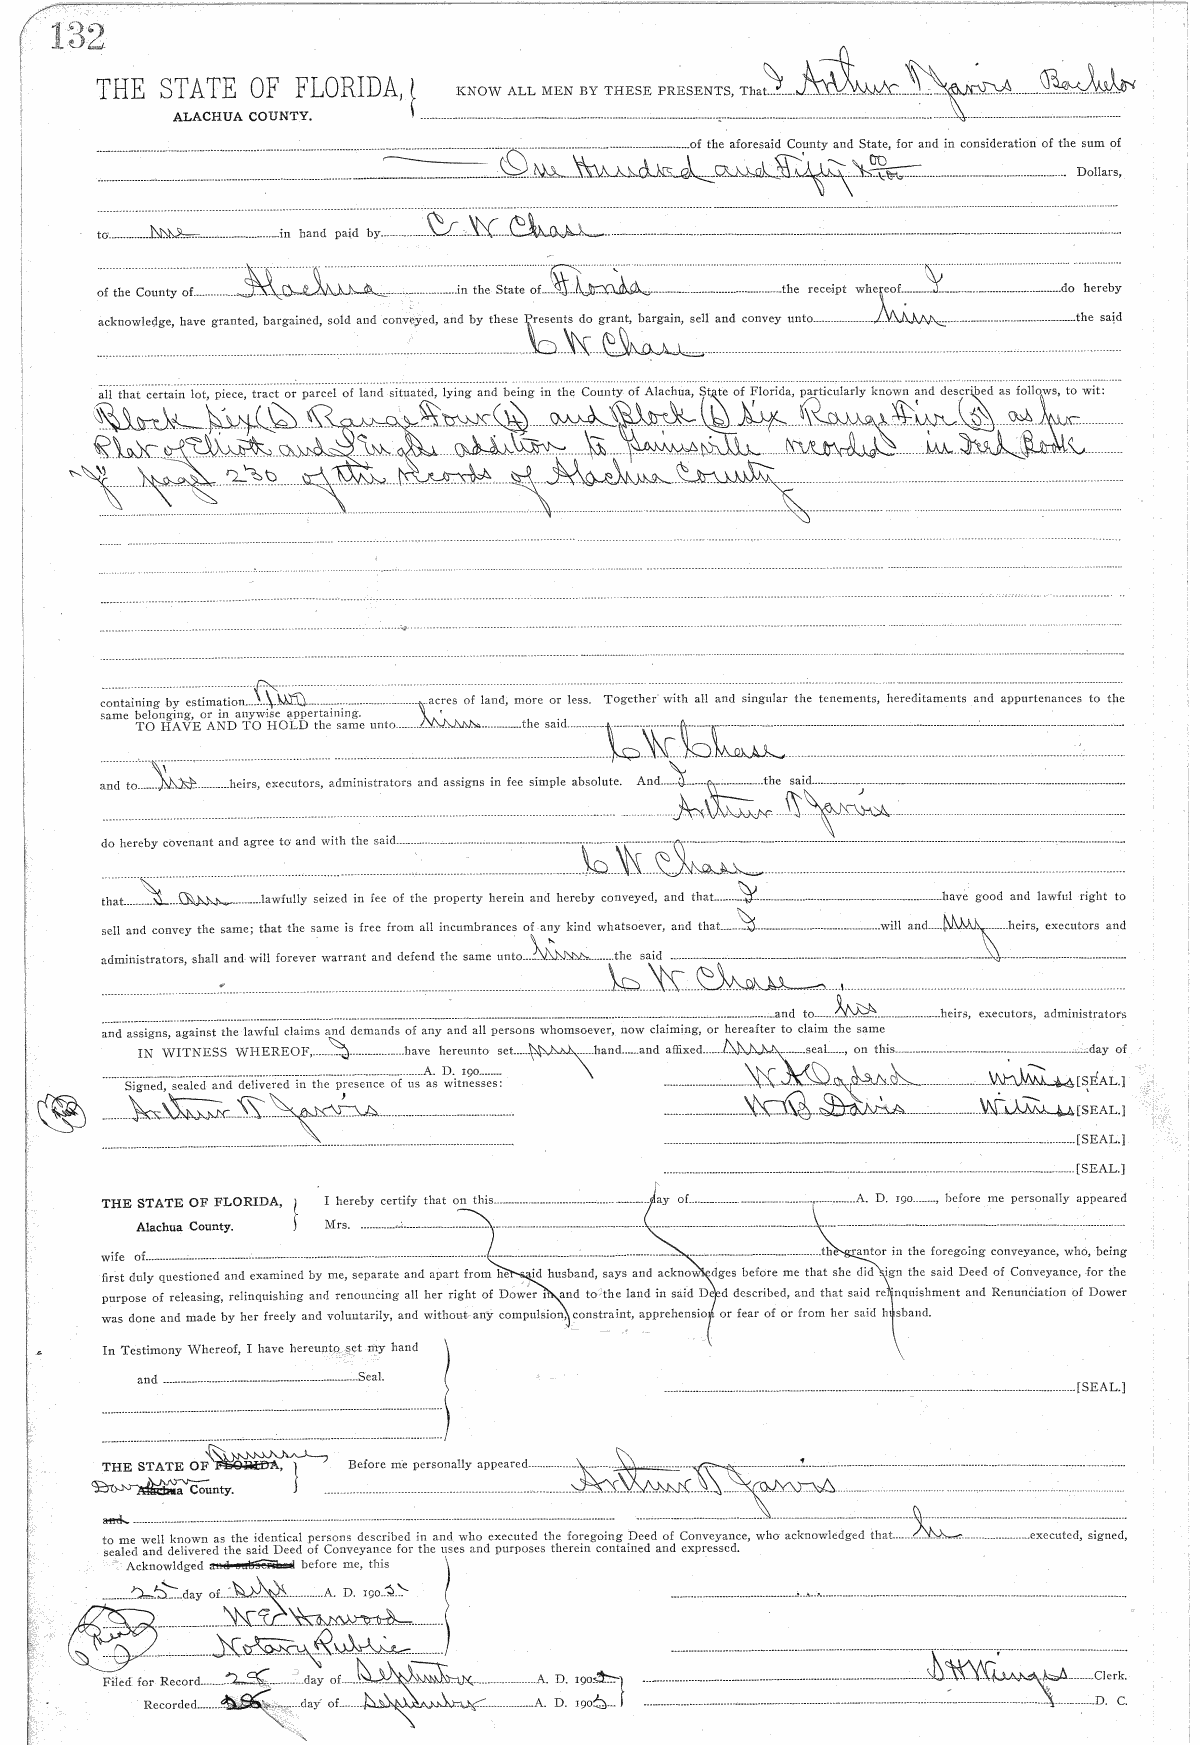 132
THE STATE OF FLORIDA, KNOW ALL MEN BY THESE PRESENTS, That I Arthur T Jarvis Bachelor
ALACHUA COUNTY.
of the aforesaid County and State, for and in consideration of the sum of
One Hundred and Fifty & 00/100 Dollars,
to me in hand paid by C W Chase
of the County of Alachua in the State of Florida the receipt whereof I do hereby
acknowledge, have granted, bargained, sold and conveyed, and by these Presents do grant, bargain, sell and convey unto him the said
C W Chase
all that certain lot, piece, tract or parcel of land situated, lying and being in the County of Alachua, State of Florida, particularly known and described as follows, to wit:
Block Six (6) Range Four (4) and Block (6) Six Range Five (5) as per
Plat of Elliott and addition to Gainsville recorded in Deed Book
page 230 of the records of Alachua County
containing by estimation Two acres of land, more or less. Together with all and singular the tenements, hereditaments and appurtenances to the
same belonging, or in anywise appertaining.
TO HAVE AND TO HOLD the same unto him the said
C W Chase
and to his heirs, executors, administrators and assigns in fee simple absolute. And I the said
Arthur T Jarvis
do hereby covenant and agree to and with the said
C W Chase
that I am lawfully seized in fee of the property herein and hereby conveyed, and that I have good and lawful right to
sell and convey the same; that the same is free from all incumbrances of any kind whatsoever, and that I will and my heirs, executors and
administrators, shall and will forever warrant and defend the same unto him the said
C W Chase
and to his heirs, executors, administrators
and assigns, against the lawful claims and demands of any and all persons whomsoever, now claiming, or hereafter to claim the same
IN WITNESS WHEREOF, I have hereunto set my hand and affixed my seal, on this day of
A. D. 190
Signed, sealed and delivered in the presence of us as witnesses: W A Ogden Witness [SEAL.]
Arthur T Jarvis W B Davis Witness [SEAL.]
[SEAL.]
[SEAL.]
THE STATE OF FLORIDA, I hereby certify that on this day of A. D. 190, before me personally appeared
Alachua County. Mrs.
wife of the grantor in the foregoing conveyance, who, being
first duly questioned and examined by me, separate and apart from her said husband, says and acknowledges before me that she did sign the said Deed of Conveyance, for the
purpose of releasing, relinquishing and renouncing all her right of Dower in and to the land in said Deed described, and that said relinquishment and Renunciation of Dower
was done and made by her freely and voluntarily, and without any compulsion, constraint, apprehension or fear of or from her said husband.
In Testimony Whereof, I have hereunto set my hand
and Seal.
[SEAL.]
Tennessee
THE STATE OF FLORIDA, Before me personally appeared
Davidson Alachua County. Arthur T Jarvis
and
to me well known as the identical persons described in and who executed the foregoing Deed of Conveyance, who acknowledged that he executed, signed,
sealed and delivered the said Deed of Conveyance for the uses and purposes therein contained and expressed.
Acknowldged and subscribed before me, this
25 day of Sept A. D. 1905
W E Harwood
Seal
Notary Public
Filed for Record 28 day of September A. D. 1905 S H Wienges Clerk.
Recorded 28 day of September A. D. 1905 D. C.